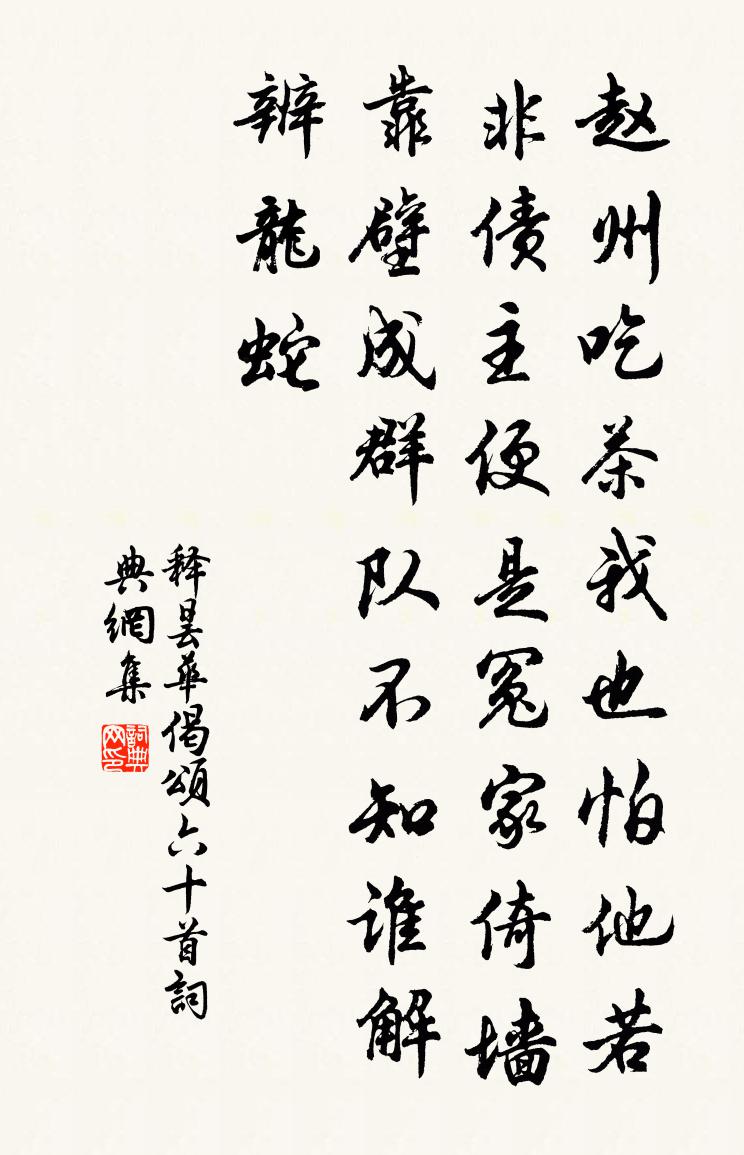 赵州吃茶我也怕他若
非债主便是冤家倚墙
靠壁成群队不知谁解
辨龍蛇
释曇華偈頌六十首詞
典網集
詞典网印